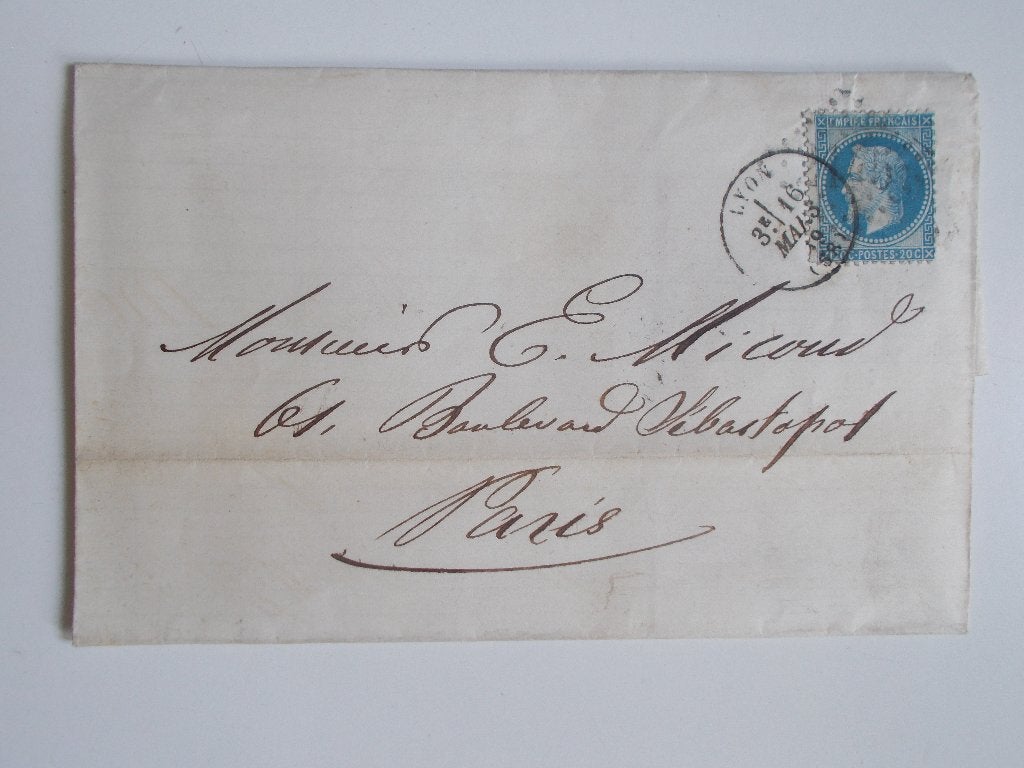 EMPIRE FRANCAIS
20 C · POSTES · 20 C
LYON
3E 16
MARS
(68)
Monsieur E. Micoud
61, Boulevard Sébastopol
Paris